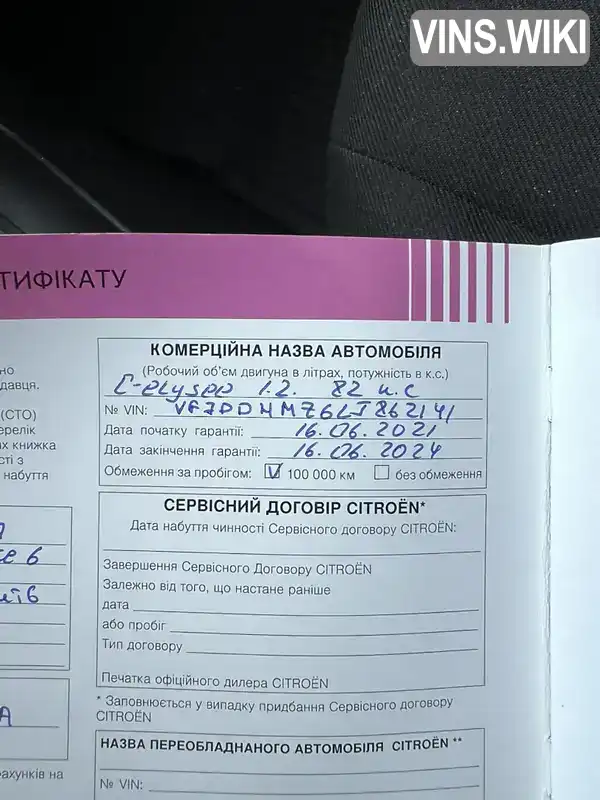 VINS.WIKI
ТИФІКАТУ
КОМЕРЦІЙНА НАЗВА АВТОМОБІЛЯ
(Робочий об'єм двигуна в літрах, потужність в к.с.)
C-elysee 1.2. 82 к.с
№ VIN: VF7DDHMZ6LJ862141
Дата початку гарантії: 16.06.2021
Дата закінчення гарантії: 16.06.2024
Обмеження за пробігом: V 100 000 км без обмеження
СЕРВІСНИЙ ДОГОВІР CITROËN*
Дата набуття чинності Сервісного договору CITROËN:
Завершення Сервісного Договору CITROËN
Залежно від того, що настане раніше
дата
або пробіг
Тип договору
Печатка офіційного дилера CITROËN
* Заповнюється у випадку придбання Сервісного договору
CITROËN
НАЗВА ПЕРЕОБЛАДНАНОГО АВТОМОБІЛЯ CITROËN **
№ VIN:
но
давця.
(СТО)
ерелік
их книжка
сті з
набуття
ce 6
А
рахунків на